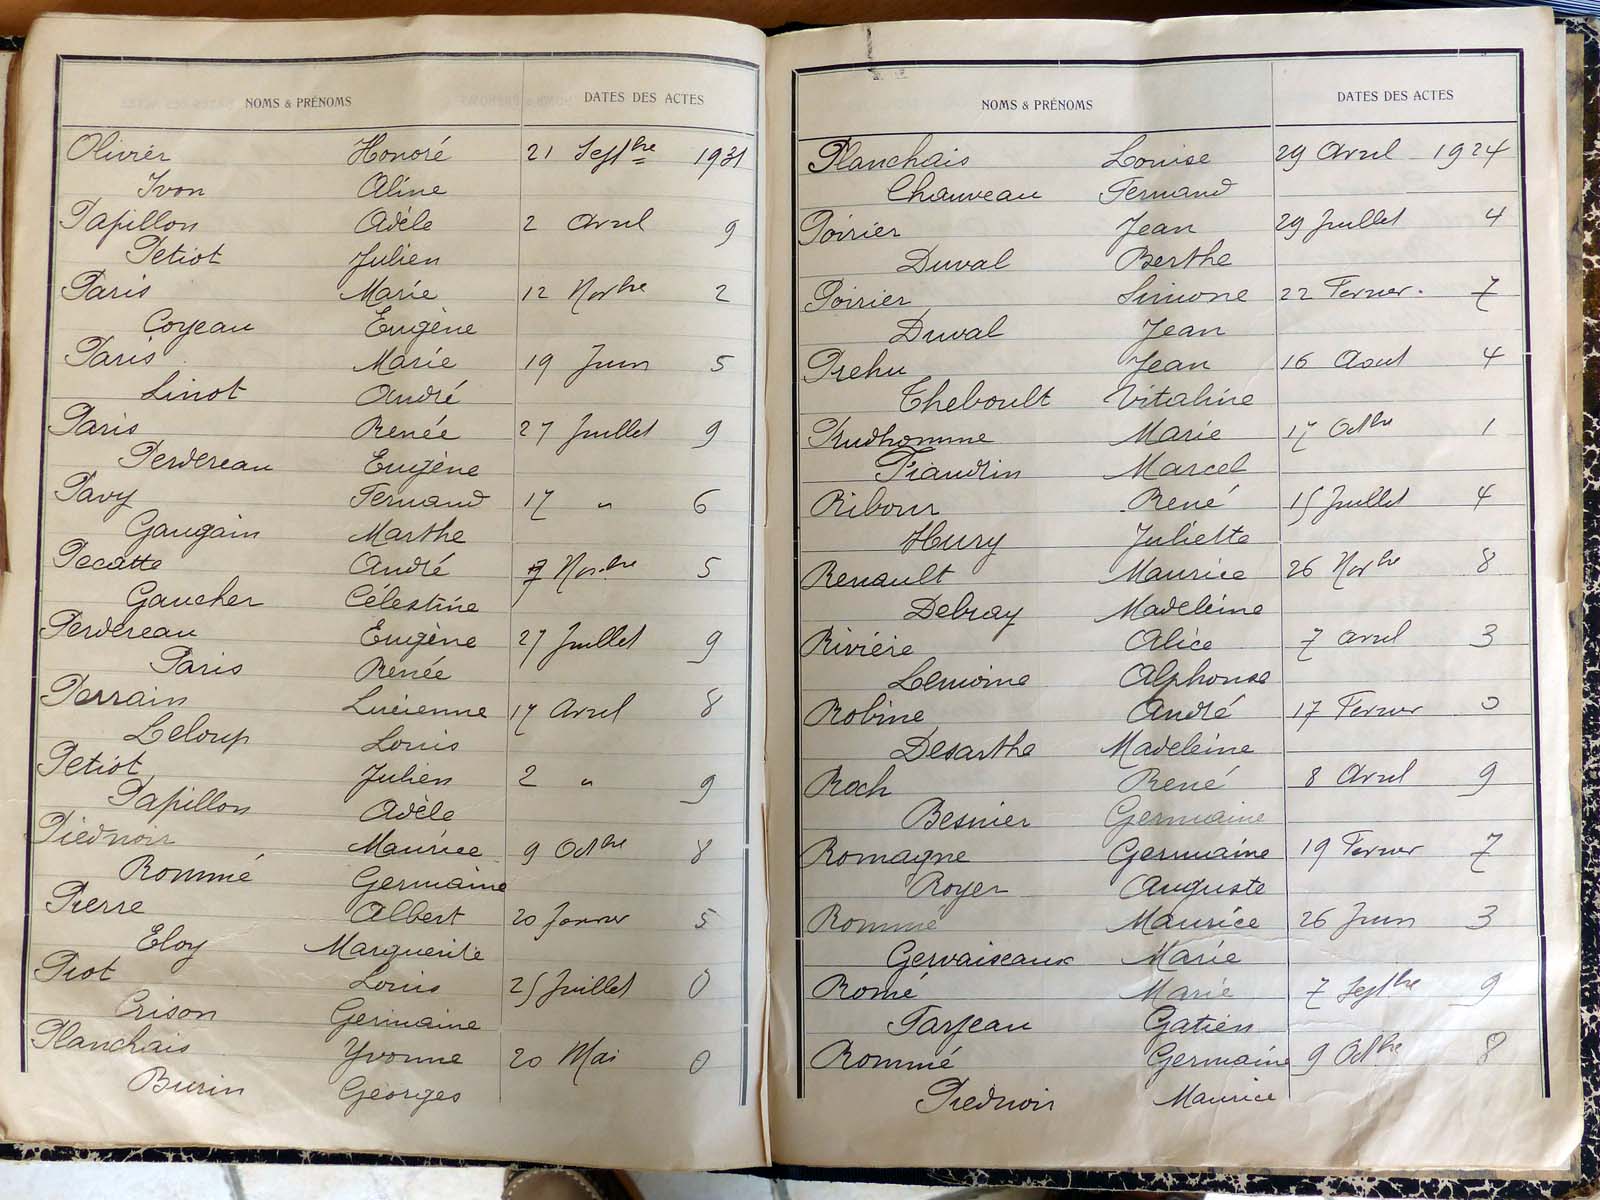 NOMS & PRÉNOMS DATES DES ACTES
Olivier Honoré 21 Septbre 1931
Yvon Aline
Papillon Adèle 2 Avril 9
Petiot Julien
Paris Marie 12 Novbre 2
Coyeau Eugène
Paris Marie 19 Juin 5
Linot André
Paris Renée 27 Juillet 9
Perdereau Eugène
Pavy Fernand 17 " 6
Gaugain Marthe
Pecatte André 7 Novbre 5
Gaucher Célestine
Perdereau Eugène 27 Juillet 9
Paris Renée
Perrain Lucienne 17 Avril 8
Leloup Louis
Petiot Julien 2 " 9
Papillon Adèle
Piednoir Maurice 9 Octbre 8
Rommé Germaine
Pierre Albert 20 Janvier 5
Eloy Marguerite
Piot Louis 25 Juillet 0
Crison Germaine
Planchais Yvonne 20 Mai 0
Burin Georges
NOMS & PRÉNOMS DATES DES ACTES
Planchais Louise 29 Avril 1924
Chauveau Fernand
Poirier Jean 29 Juillet 4
Duval Berthe
Poirier Simone 22 Fevrier. 7
Duval Jean
Prehu Jean 16 Aout 4
Theboult Vitaline
Prudhomme Marie 17 Octbre 1
Piaudrin Marcel
Ribour René 15 Juillet 4
Hury Juliette
Renault Maurice 26 Novbre 8
Debray Madeleine
Rivière Alice 7 avril 3
Lemoine Alphonse
Robine André 17 Fevrier 0
Desarthe Madeleine
Roch René 8 Avril 9
Besnier Germaine
Romagne Germaine 19 Fevrier 7
Royer Auguste
Rommé Maurice 26 Juin 3
Gervaiseaux Marie
Romé Marie 7 Septbre 9
Tarjeau Gatien
Rommé Germaine 9 Octbre 8
Piednoir Maurice